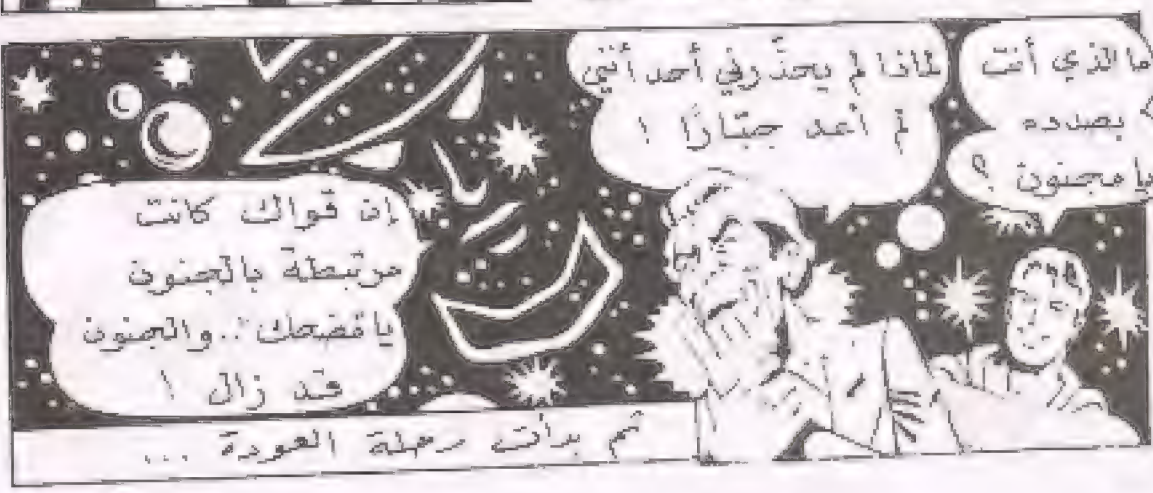 ما الذي أنت
بصدده
يا مجنون ؟
لماذا لم يحذّرني أحد أنني
لم أعد جبّارًا !
إن قواك كانت
مرتبطة بالجنون
يا مضحك .. والجنون
قد زال !
ثم بدأت رحلة العودة ...